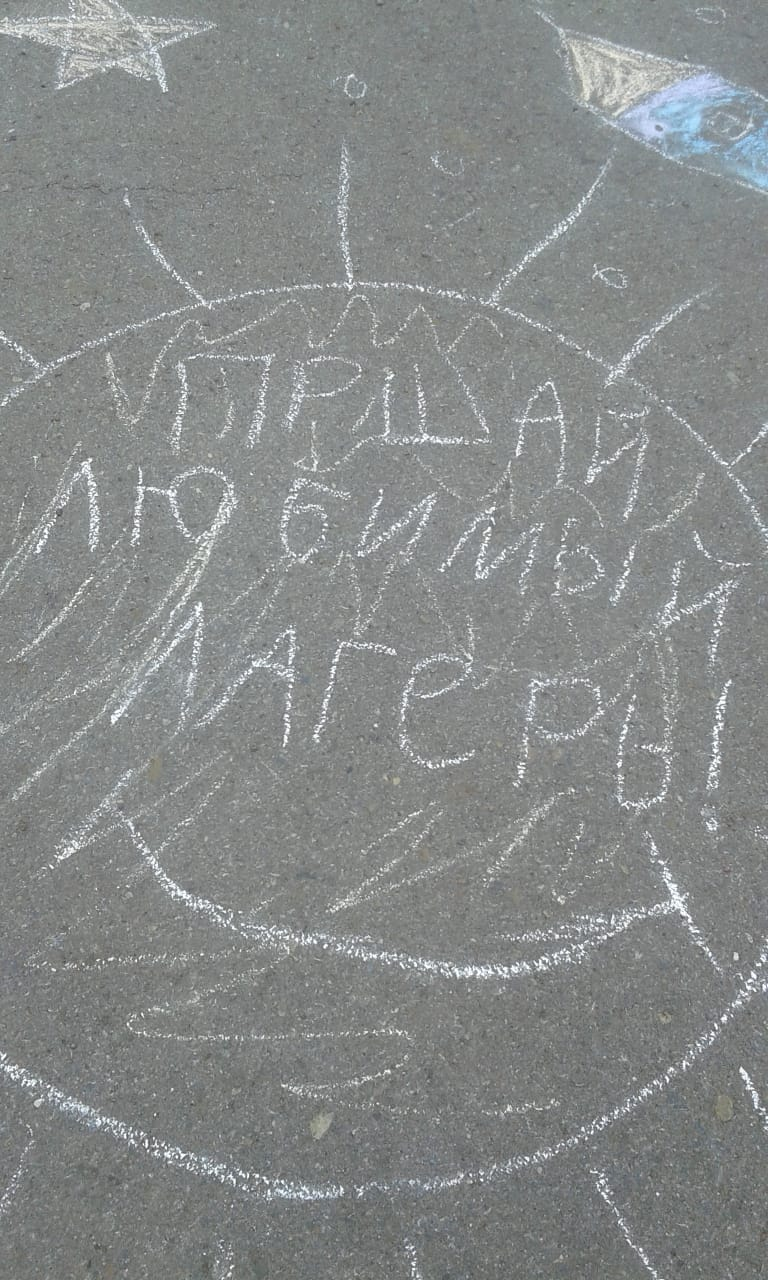 ПРЩАЙ
ЛЮБИМЫЙ
ЛАГеРЬ!